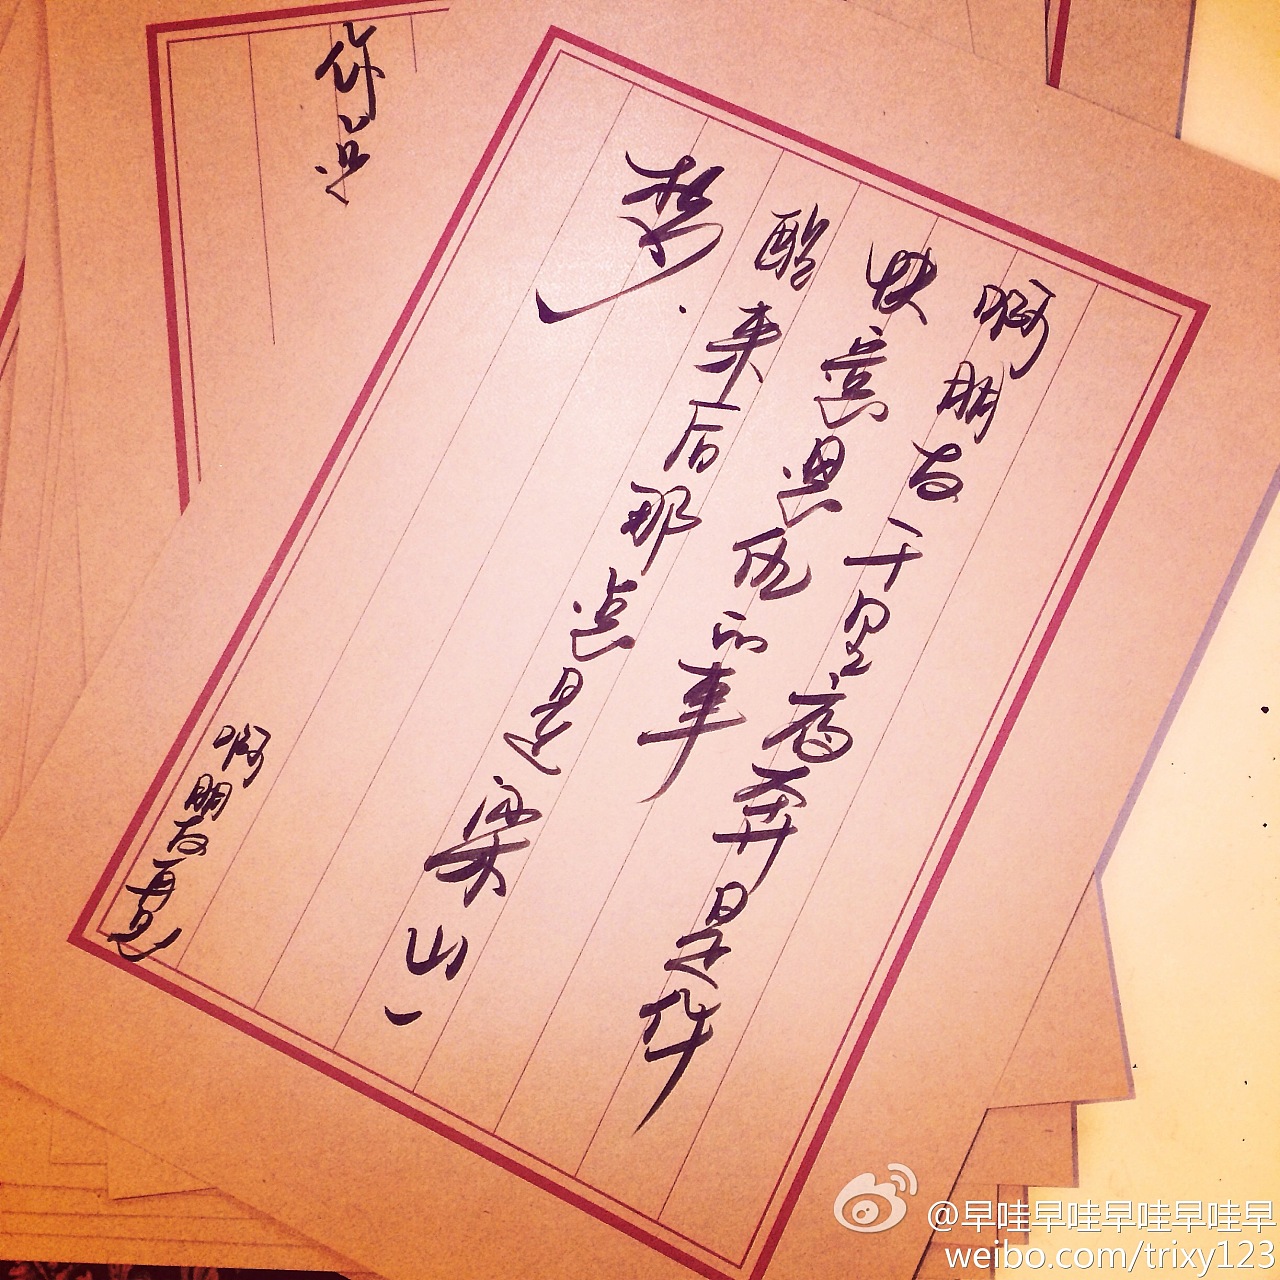 啊朋友千里夜奔是件
快意恩仇的事
醒来后那意是梁山一
梦.
啊朋友再见
你是
@早哇早哇早哇早哇早
weibo.com/trixy123